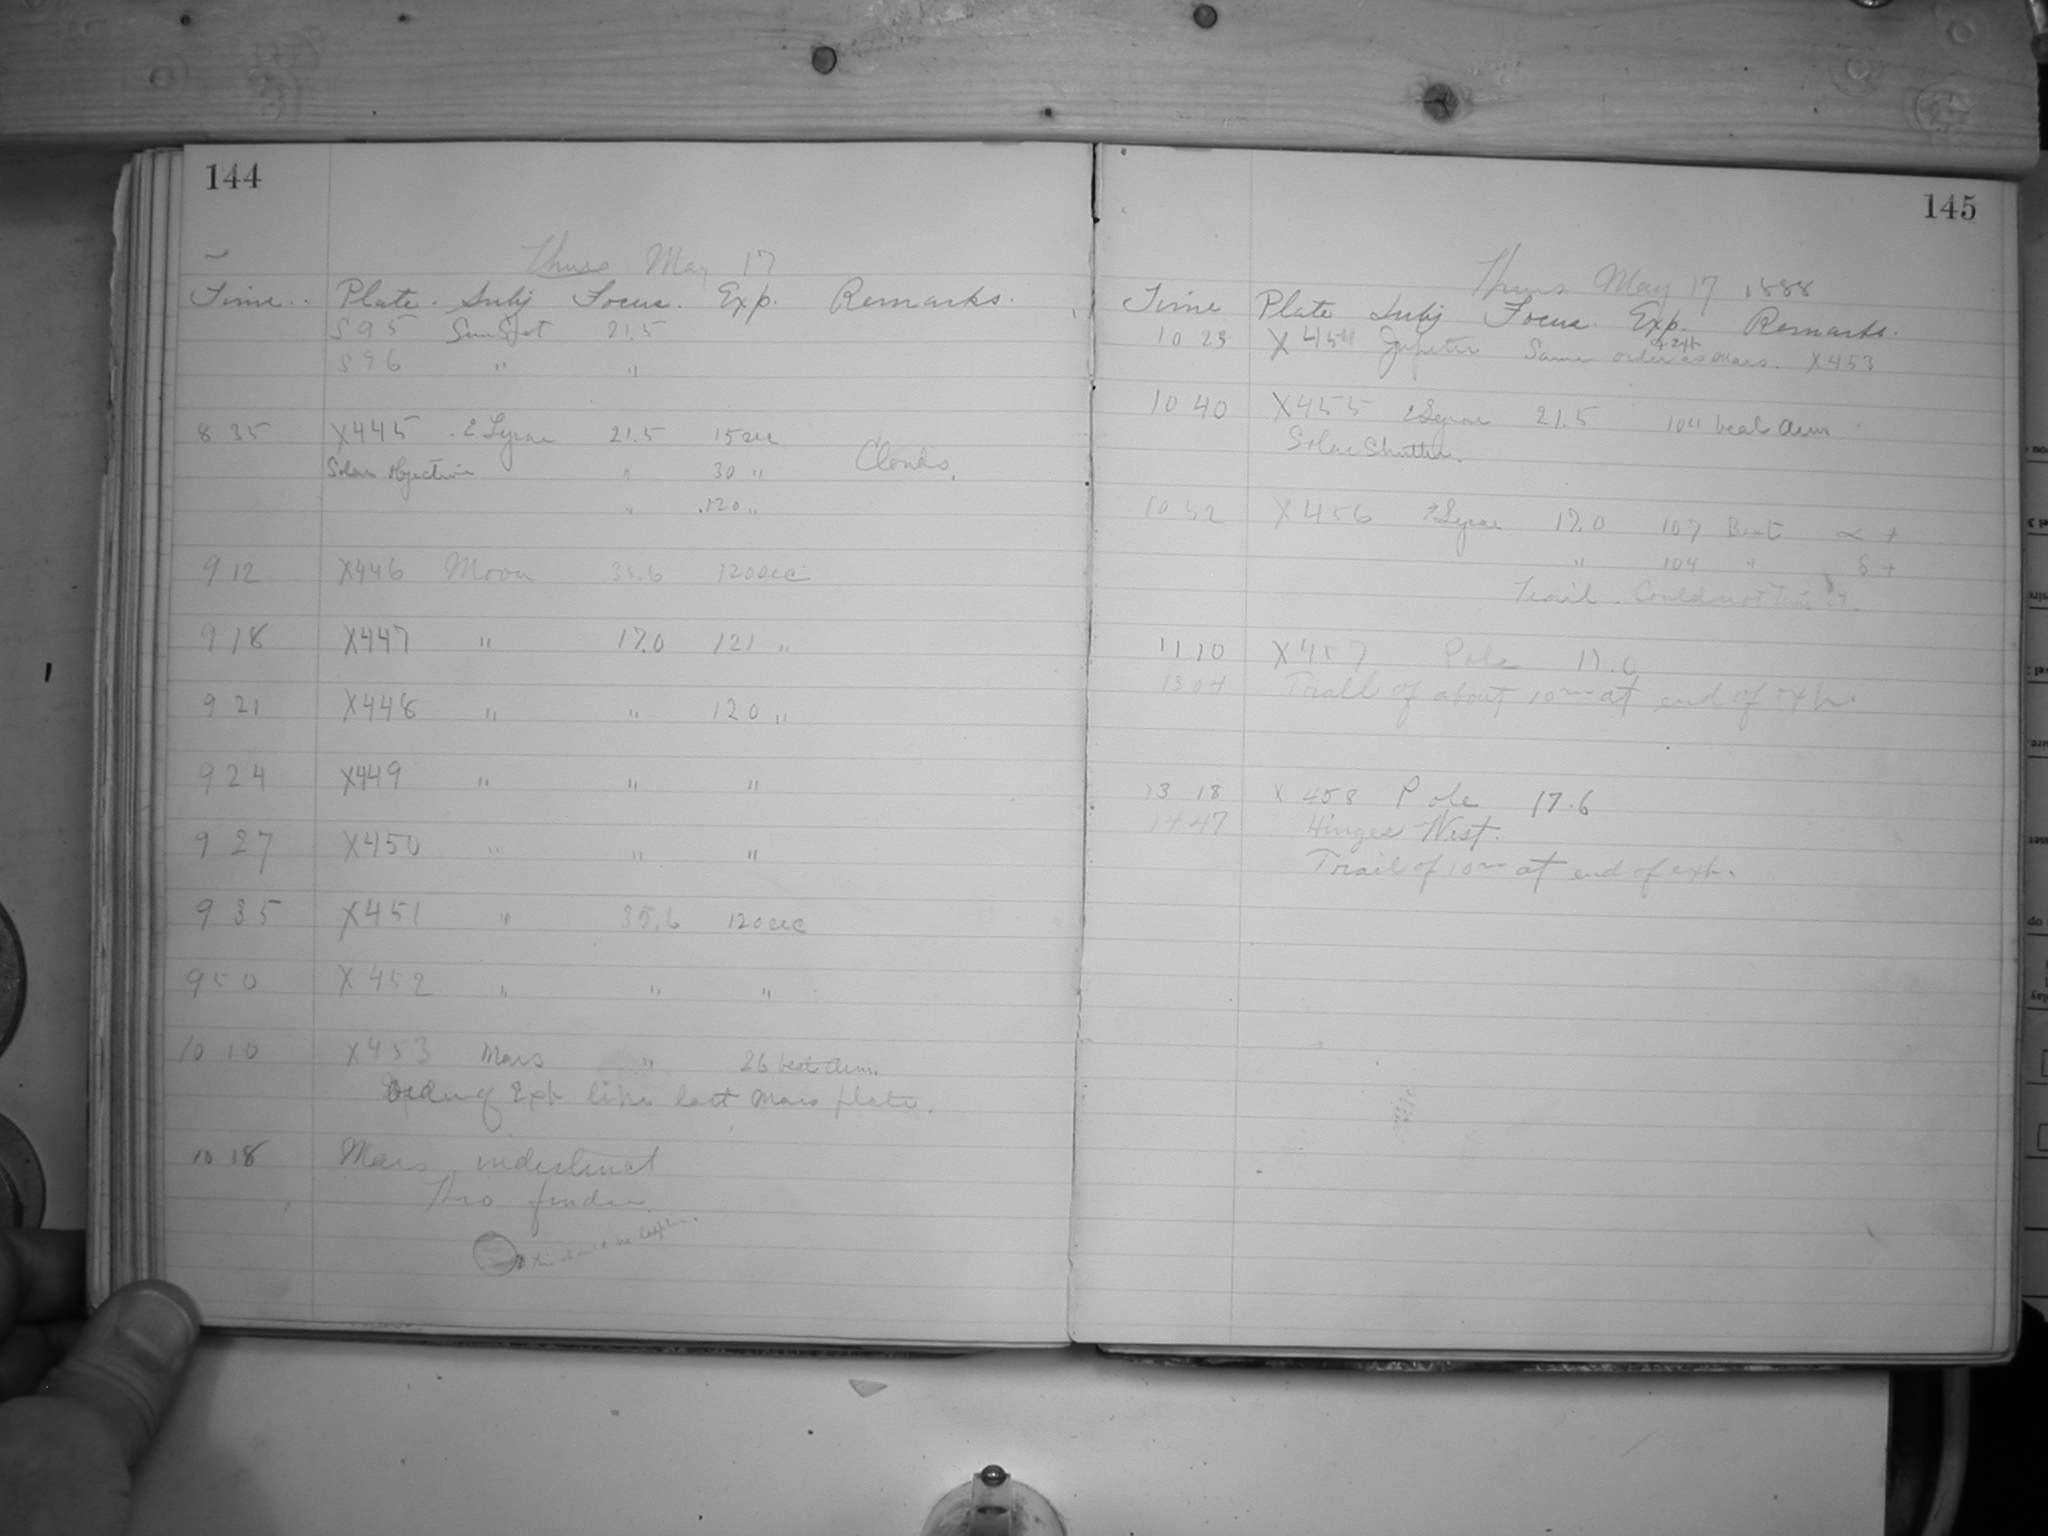 144
Thurs May 17
Time. Plate. Subj Focus. Exp. Remarks.
S95 Sun Spot 21.5
S96 " "
8 35 X445 . ε Lyrae 21.5 15 sec
Solar objective " 30 " Clouds.
" 120 "
9 12 X446 Moon 35.6 120 sec
9 18 X447 " 17.0 121 "
9 21 X448 " " 120 "
9 24 X449 " " "
9 27 X450 " " "
9 35 X451 " 35.6 120 sec
9 50 X452 " " "
10 10 X453 Mars " 26 beat Arm.
Order of Exp like last Mars plate.
10 18 Mars indistinct
thro finder
145
Thurs May 17 1888
Time Plate Subj Focus. Exp. Remarks.
10 23 X454 Jupiter Same order as Mars. X453
10 40 X455 ε Lyrae 21.5 104 beat Arm
Solar Shutter.
10 52 X456 ε Lyrae 17.0 107 Beat α +
" 104 " δ +
Trail. Could not
11 10 X457 Pole 17.0
13 04 Trail of about 10m at end of
13 18 X458 Pole 17.6
14 47 Hinges West.
Trail of 10m at end of exp.